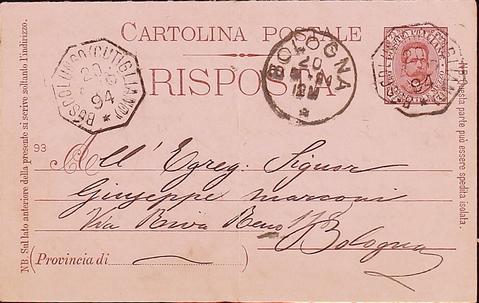 CARTOLINA POSTALE
RISPOSTA
BOSCOLUNGO (CUTIGLIANO)
20
94
BOLOGNA
20
12M
94
93
All' Egreg. Signor
Giuseppe Marconi
Via Riva Reno 118
Bologna
(Provincia di)
NB Sul lato anteriore della presente si scrive soltanto l'indirizzo.
NB. Questa parte può essere spedita isolata.